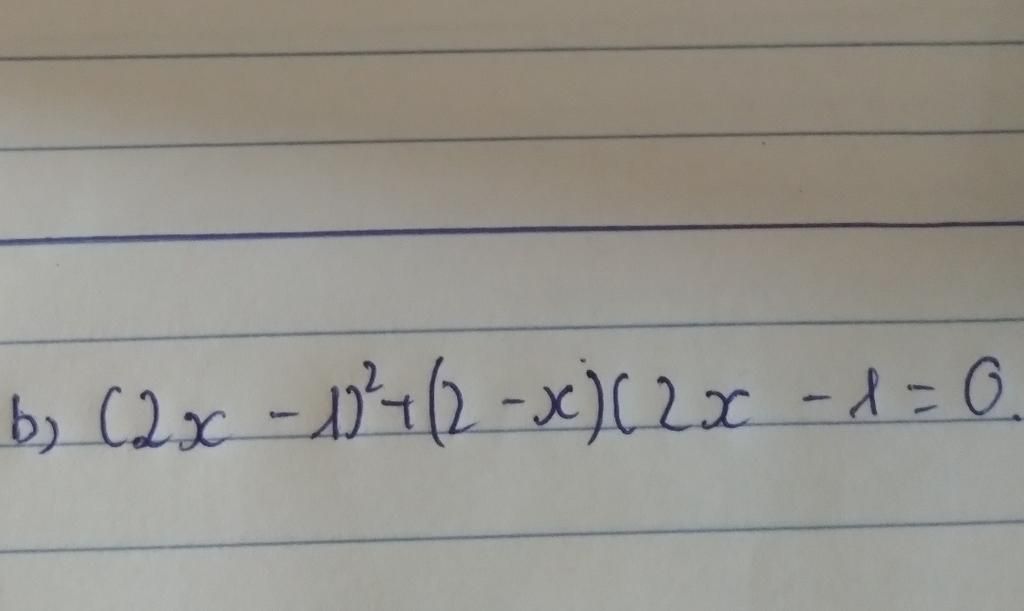 b) (2x - 1)²+(2 -x)(2x - 1 = 0.